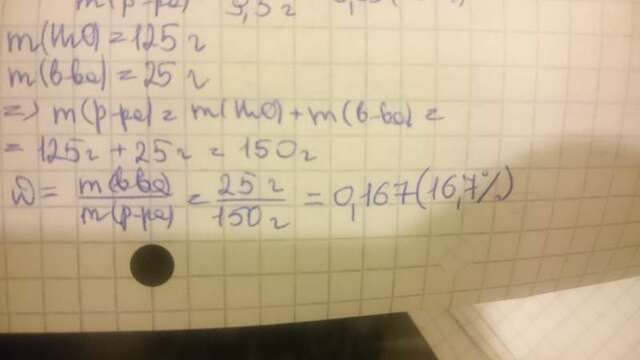 m(р-ра) 5,5 г
m(H₂O) = 125 г
m(в-ва) = 25 г
=> m(р-ра) = m(H₂O) + m(в-ва) =
= 125 г + 25 г = 150 г
ω = m(в-ва) / m(р-ра) = 25 г / 150 г = 0,167 (16,7%)